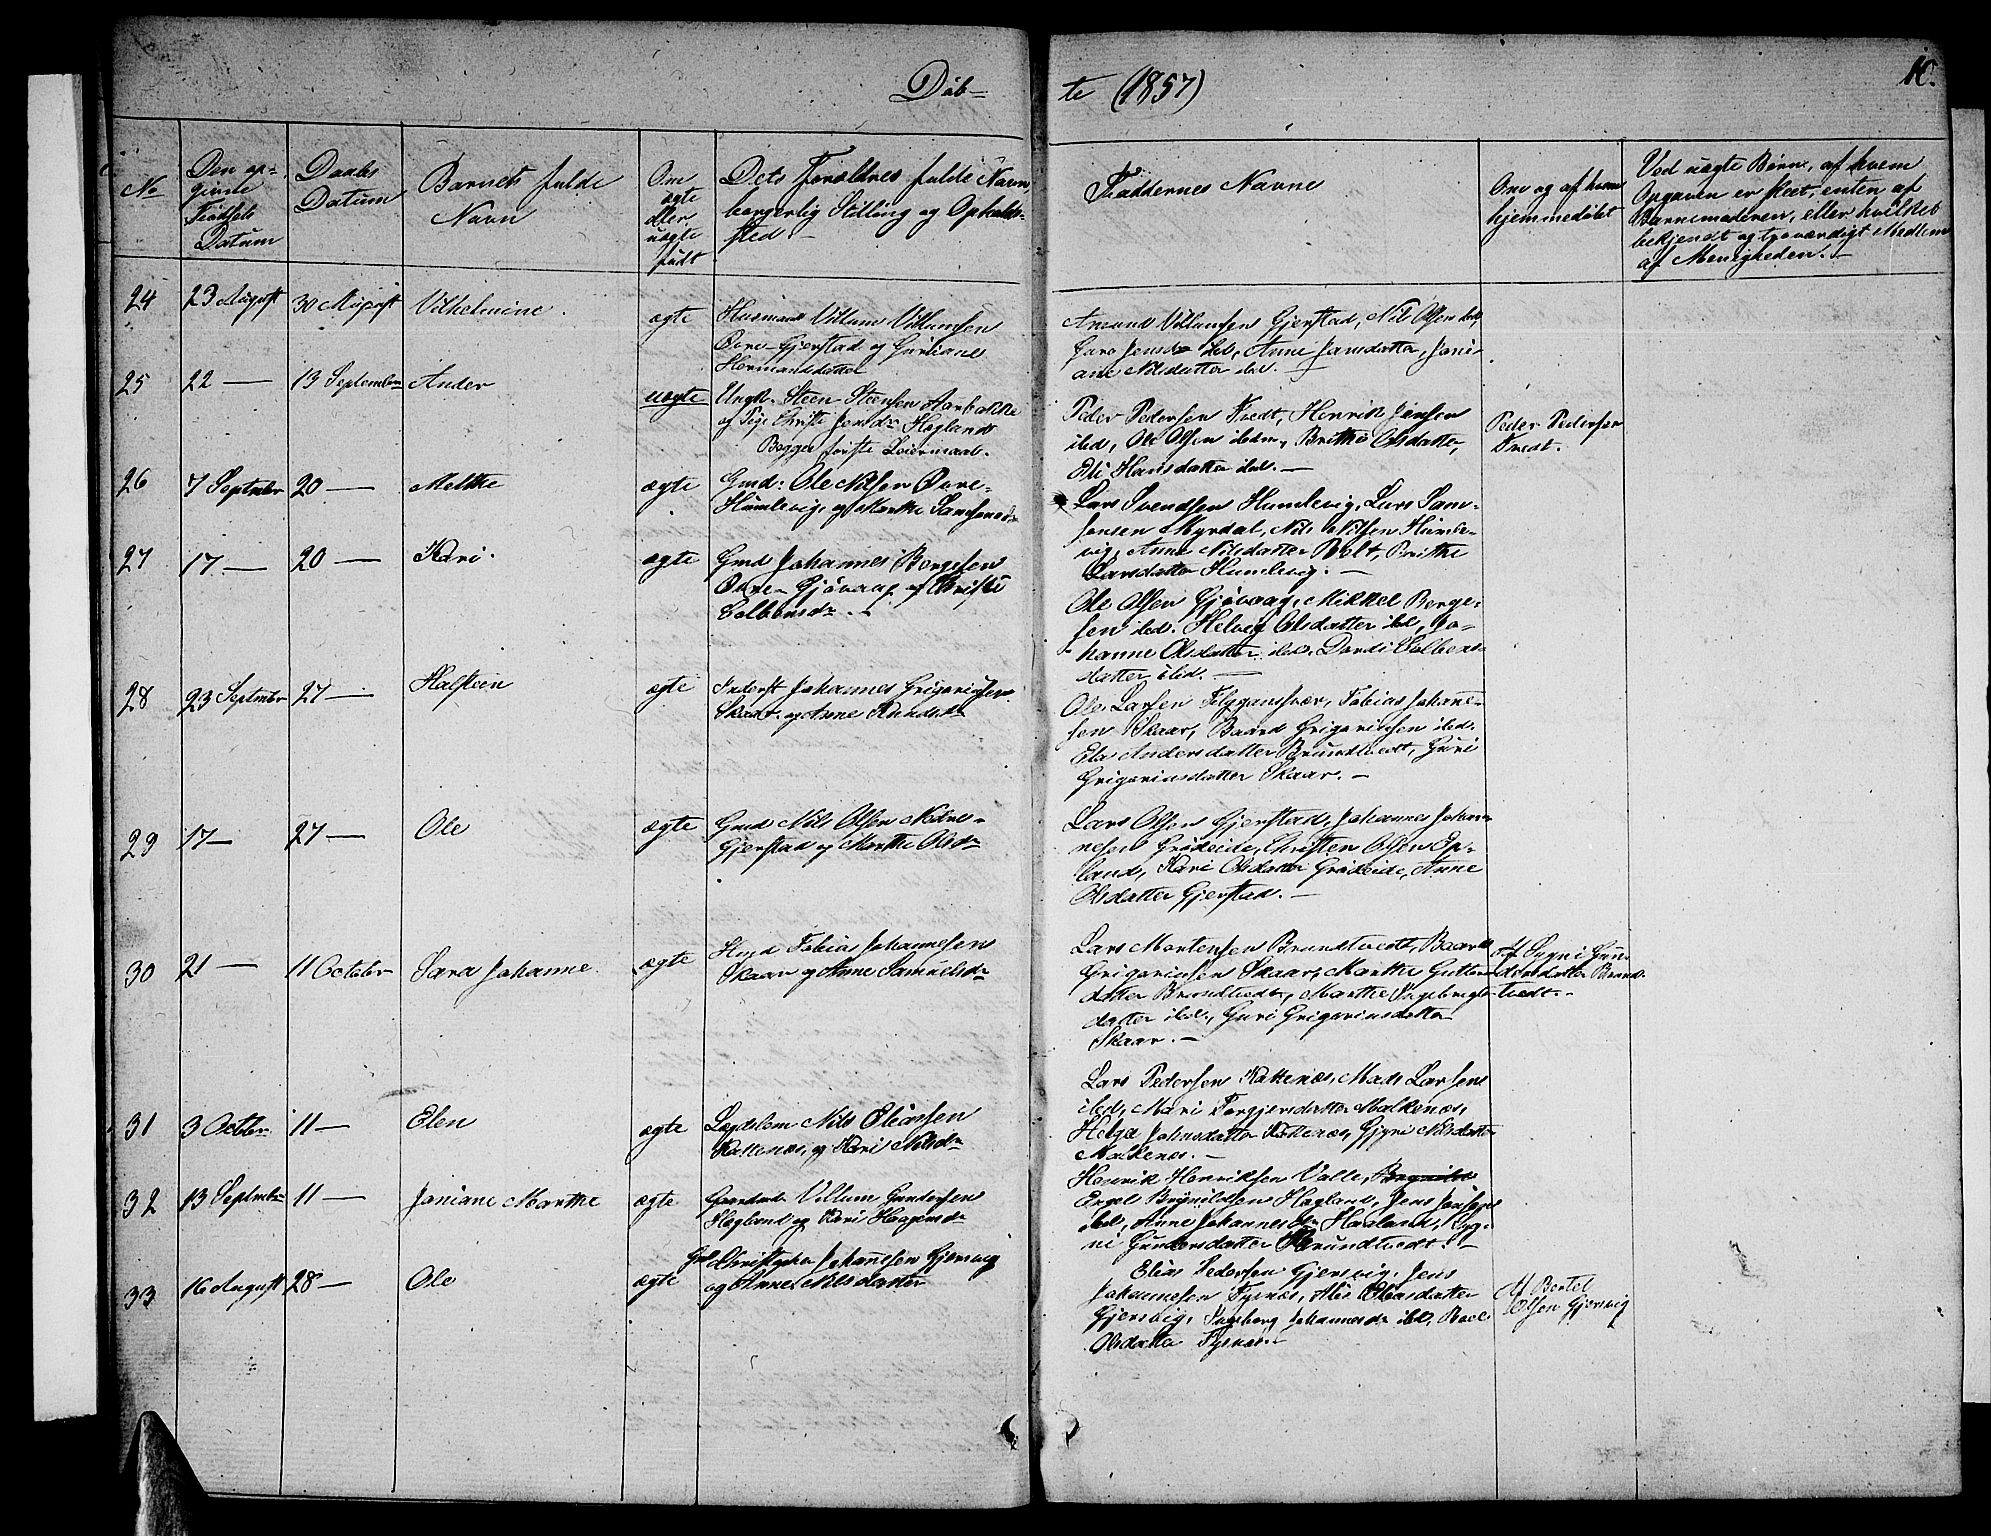 Döb-
te (1857)
10.
No
Den op-
givne
Födsels
Datum
Daabs
Datum
Barnets fulde
Navn
Om
ægte
eller
uægte
födt
Dets Forældres fulde Navn
borgerlig Stilling og Opholds-
sted
Faddernes Navne
Om og af hvem
hjemmedöbt
Ved uægte Börn, af hvem
Opgaven er skeet, enten af
Barnemoderen, eller hvilket
bekjendt og troværdigt Medlem
af Menigheden.
24
23 August
30 August
Vilhelmine
ægte
Husmand Villum Villumsen
Övre Gjerstad og Guriane
Hermansdatter
Amund Villumsen Gjerstad, Nils Olsen ibd,
Guro Jensdr ibd, Anne Jansdatter, Jani-
ane Nilsdatter ibd.
25
22 —
13 September
Ander
uægte
Ungk. Steen Steensen Aarbakke
og Pige Christi Jensdr Hegland
Begges förste Leiermaal.
Peder Pedersen Tvedt, Henrik Jansen
ibd, Ole Olsen ibdm, Brithe Olsdatter,
Eli Hansdatter ibd. —
Peder Pedersen
Tvedt.
26
7 September
20 —
Meltke
ægte
Gmd: Ole Nilsen Övre-
Humlevig, og Marthe Samsonsdr
Lars Svendsen Humlevig, Lars Sam-
sonsen Myrdal, Nils Nilsen Humle-
vig, Anne Nilsdatter Bolt, Brithe
Larsdatter Humlevig. —
27
17 —
20 —
Kari
ægte
Gmd Johannes Borgesen
Övre Gjövaag og Christi
Colbensdr. —
Ole Olsen Gjövaag, Mikkel Berge-
sen ibd. Helvig Olsdatter ibd, Jo-
hanne Olsdatter ibd. Dordi Colbens-
datter ibid. —
28
23 September
27 —
Halsteen
ægte
Inderst Johannes Grigoriussen
Skaar og Anne Knudsdr
Ole Larsen Flyganssvær, Tobias Johanne-
sen Skaar, Baard Grigoriussen ibd.
Ela Andersdatter Brundtvedt, Guri
Grigoriusdatter Skaar. —
29
17 —
27 —
Ole
ægte
Gmd Nils Olsen Nedre-
Gjerstad og Marthe Olsdr
Lars Olsen Gjerstad, Johannes Johan-
nesen Grödeide, Christen Olsen Op-
land, Kari Olsdatter Gröideide, Anne
Olsdatter Gjerstad. —
30
21 —
11 October
Sara Johanne
ægte
Hmd Tobias Johannesen
Skaar og Anne Samuelsdr
Lars Mortensen Brundtvedt, Baard
Grigoriussen Skaar, Marthe Guttorm-
datter Brundtvedt, Marthe Ingebrigts-
datter ibd, Guri Grigoriusdatter
Skaar. —
af Sygni Gun-
dersdatter Brund-
tvedt. —
31
3 October
11 —
Elen
ægte
Lægdslem Nils Eliassen
Kattenæs, og Kari Nilsdr
Lars Pedersen Kattenæs, Mads Larsen
ibd, Mari Torgjersdatter Malkenæs,
Helga Johnsdatter Kattenæs, Gjyri Nilsdatter
Malkenæs. —
32
13 September
11 —
Janiane Marthe
ægte
Villum Gundersen
Hegland og Kari Haagensdr
Henrik Henriksen Valle, Brynild
Engel Brynildsen Hegland, Jens Jensen
ibd, Anne Johannesdr Hegland, Syg-
ni Gundersdatter Brundtvedt. —
33
16 August
28 —
Ole
ægte
Gmd Christopher Johannesen Gjersvig
og Anne Nilsdatter
Elias Pedersen Gjersvig. Jens
Johannesen Tysnæs, Alis Eliasdatter
Gjersvig, Ingeborg Johannesdr ibd, Boel
Olsdatter Tysnæs. —
af Bertel
Olsen Gjersvig